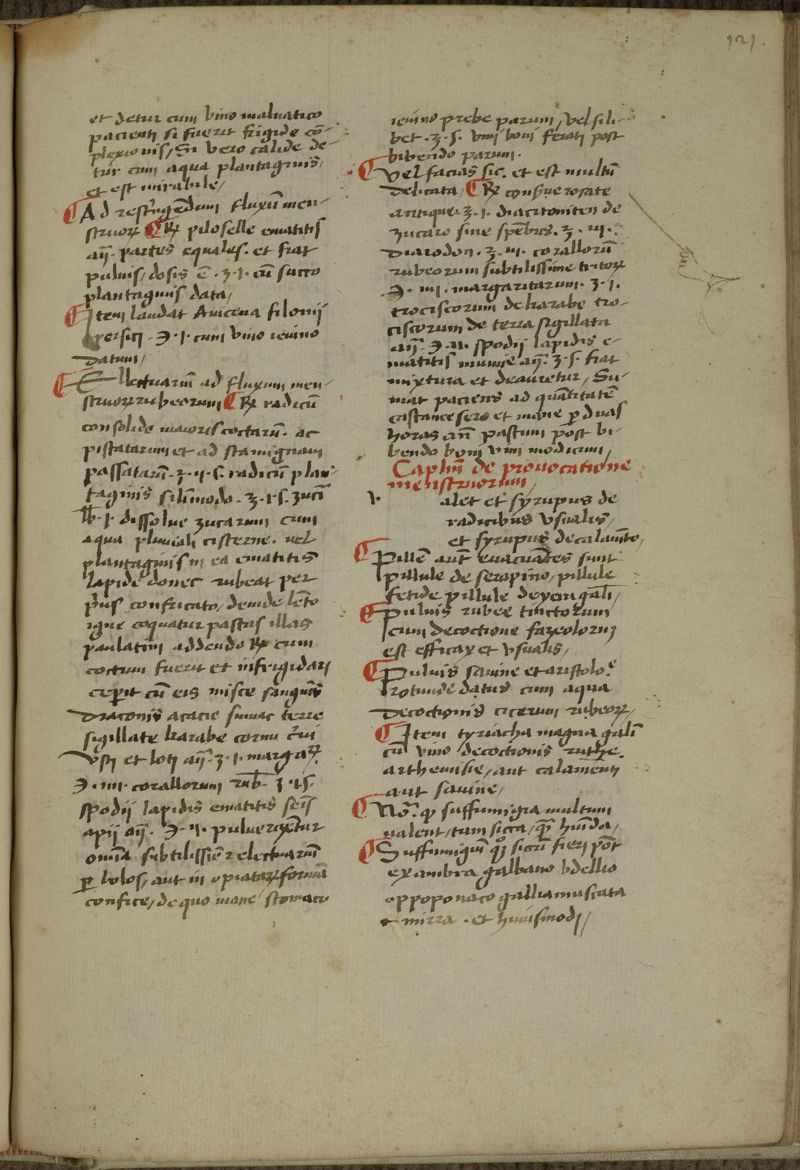 121.
et detur cum vino maluatico
pacienti si fuerit frigide cō-
plexionis, Si vero calide de-
tur cum aqua plantaginis,
et est mirabile,
Ad restringēdum fluxum men-
struorꝝ ℞ piloselle ematitis
aā. partes equales. et fiat
puluis, dosis ē. ʒ. j. cū succo
plantaginis data,
Item laudat Auicena filonij
persici. ℈. j. cum vino ieiuno
datum,
Electuariū ad fluxum men-
struorꝝ rubeorum ℞ radicū
consolide maioris coctarū. ac
pistatarum et ad stamignam
passatarū. ʒ. ij. s. radicū plan-
taginis silimodo. ʒ. j. s. zucī
lb. j dissolue zucarum cum
aqua pluuiali cisterne. vel
plantaginis in ea ematitis
lapidē donec rubeat per
prius confricato, deinde lēto
igne coquatur pastus illas
paulatim addendo ℞ cum
coctum fuerit et infrigidari
ceperit cū eis misce sanguis
draconis acacie sumac terre
sigillate karabe cornu cerui
vsti et loti aā. ʒ. j. margaꝝ.
℈. iiij. corallorum rub. ʒ. s.
spodij lapidis ematitis semīs
apij aā. ℈. ij. puluerizētur
omīa subtilissime et electuariū
ꝑ bolos, aut in opiataꝝ formā
confice, de quo mane stomaco
ieiuno prebe parum, vel sili-
bet. ʒ. s. vini boni ferati post
bibendo parum.
Vel facias sic. et est multū
delicata, ℞ conserue rosate
antique. ʒ. j. diacitoniten de
zucaro sine spēbus. ʒ. iij.
diarodon. ʒ. iij. corallorū
rubeorum subtilissime tritoꝝ
℈. iiij. margaritarum. ʒ. j.
trociscorum de karabe tro-
ciscorum de terra sigillata
aā. ℈. ij. spodij lapidis e-
matitis mumie aā. ʒ. s. fiat
mixtura et deauretur, Su-
mat paciens ad quātitatē
castanee sero et mane ꝑ duas
horas añ pastum post bi-
bendo boni vini modicum,
Caplm de prouocatione
menstruorum,
v alet et syrupus de
radicibus vsualis,
et syrupus de calamēto,
Pille aut euacuātes sunt
pillule de serapino, pillule
fetide pillule de yera galī,
Puluis rubee tinctorum
cum decoctione faxeolorum
est efficax et vsualis,
Puluis sauine et aristolo.e
rotunde datus cum aqua
decoctionis cicerum rubeoꝝ,
Item tyriacha magna galiē
cū vino decoctionis ruthe.
arthemisie, aut calamenti
aut sauine,
No. ꝙ suffumigia multum
valent, tum sicca, qͣ hūida,
Suffumigiū qͦ siccū fieri pōt
ex ambra galbano bdellio
oppoponaco gallia muscata
mirra. et huiusmodi,